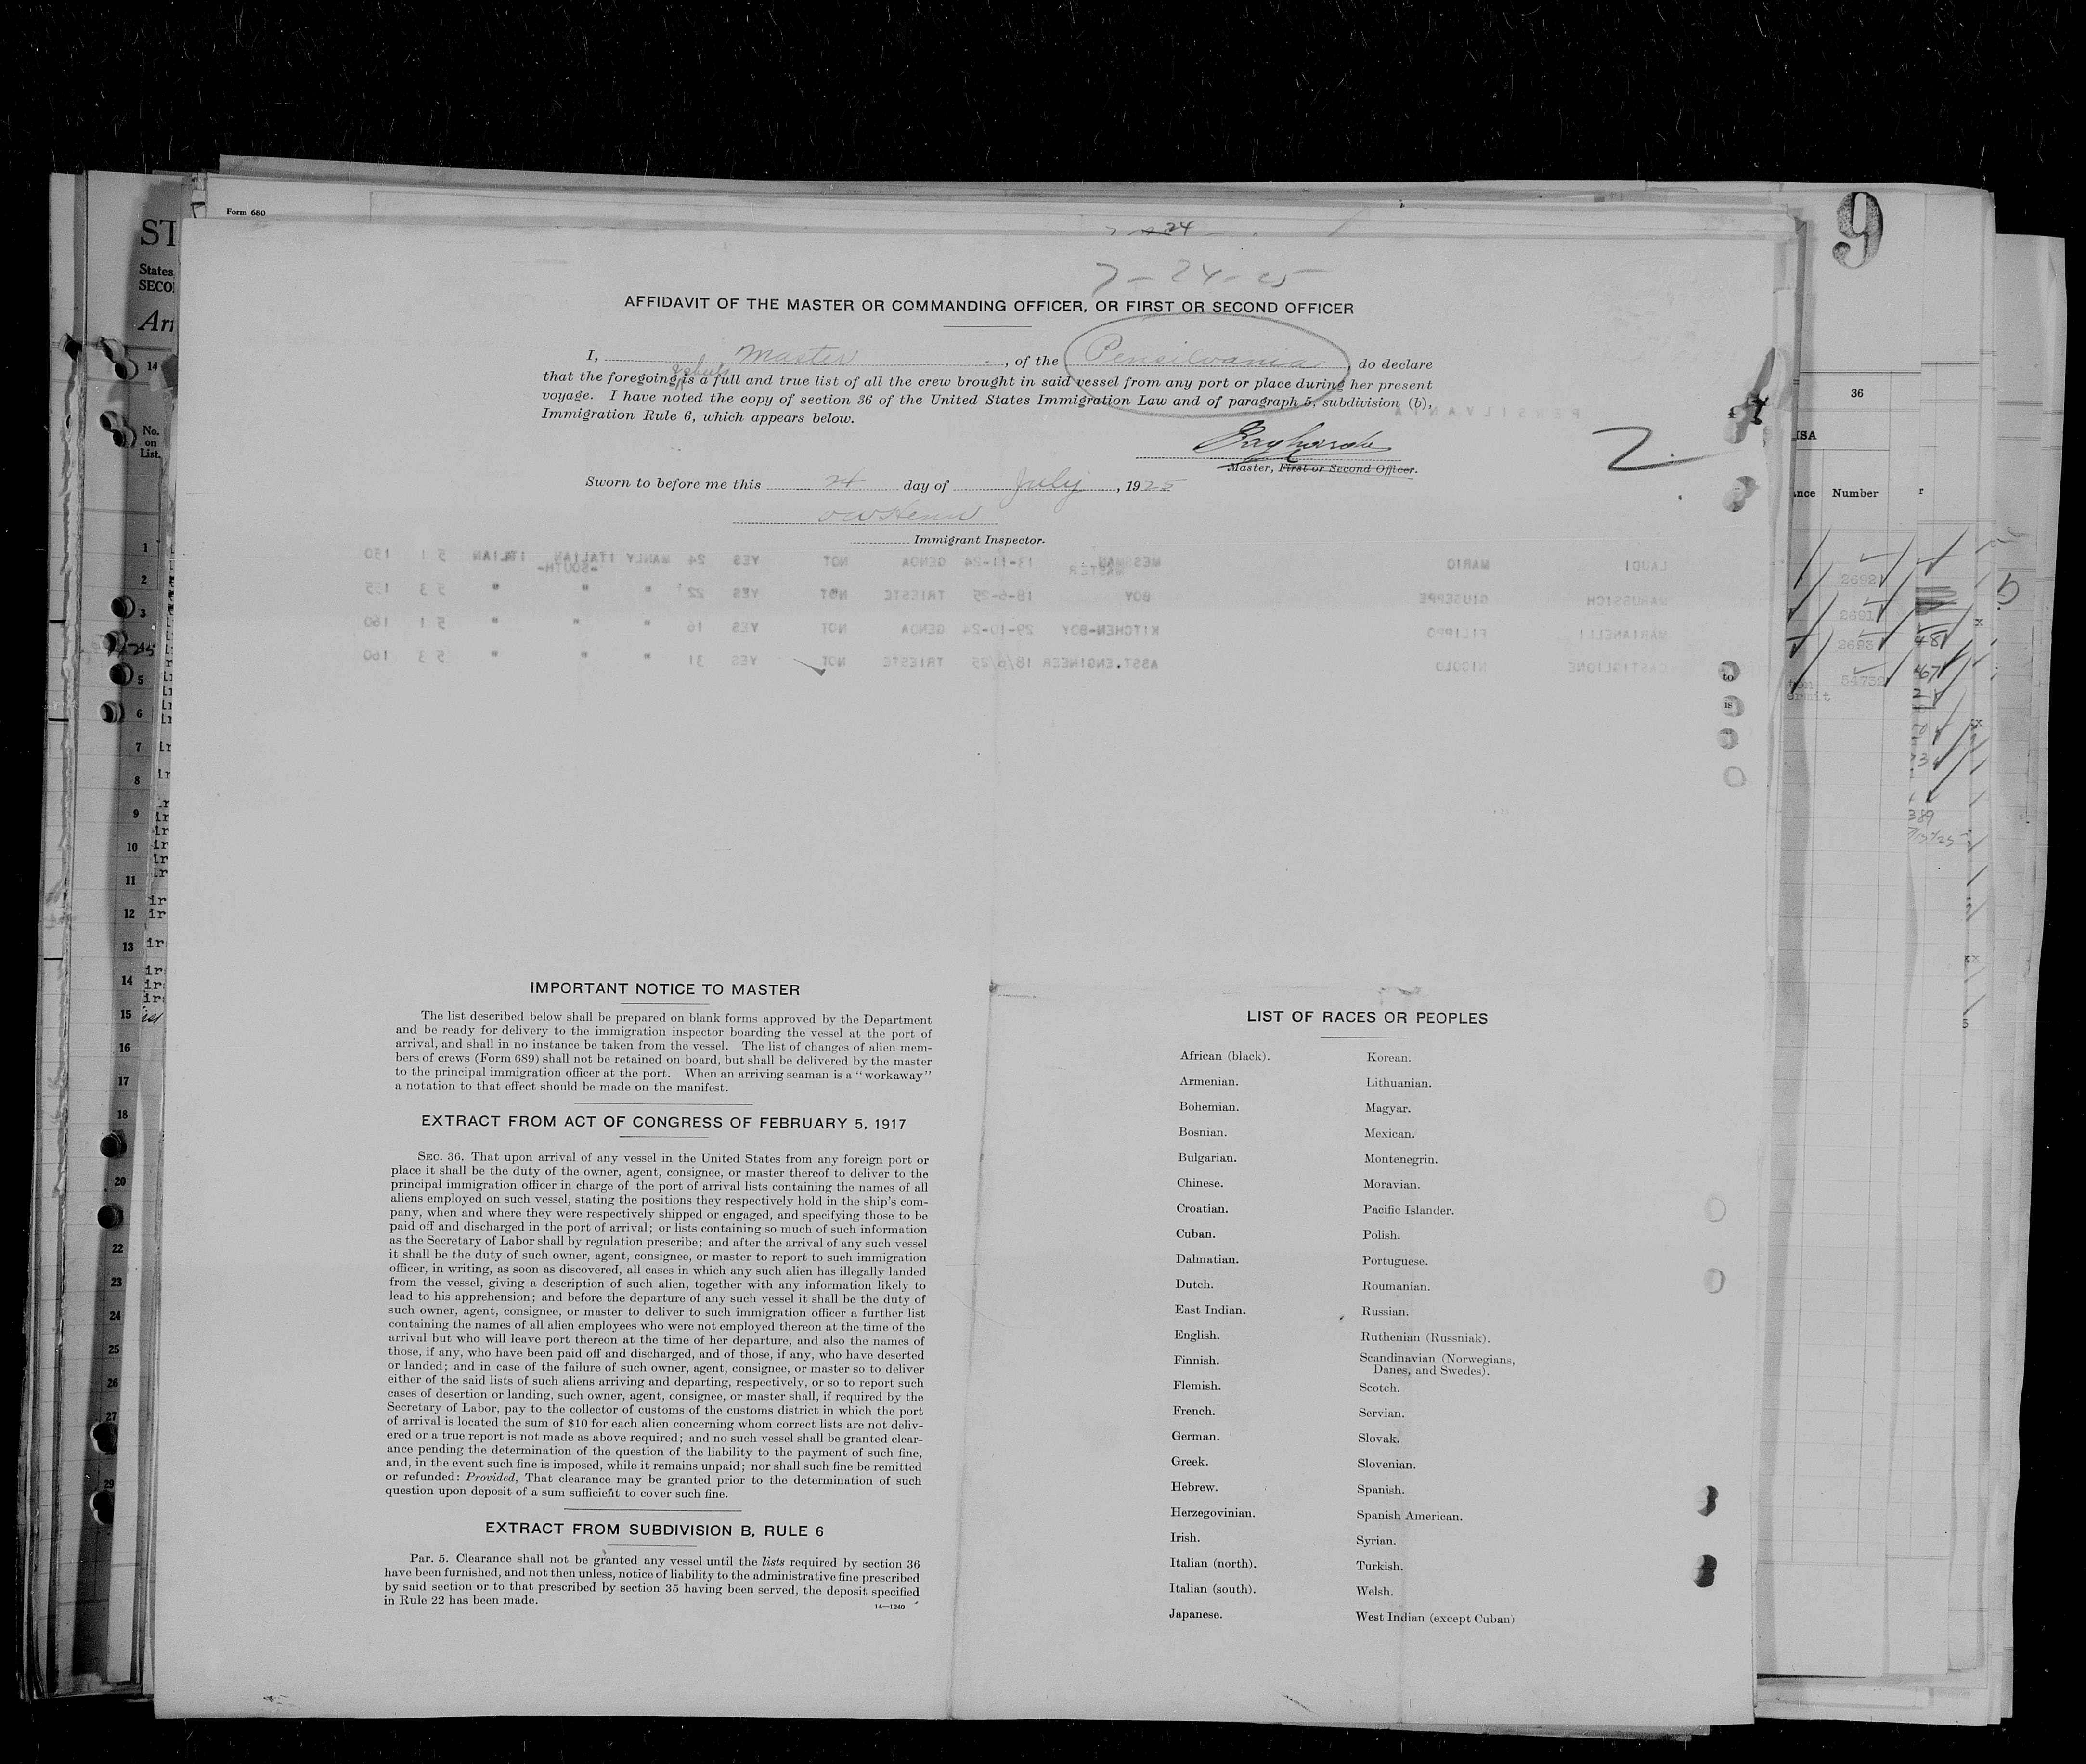 Form 680
9
24
7-24-25
AFFIDAVIT OF THE MASTER OR COMMANDING OFFICER, OR FIRST OR SECOND OFFICER
I, Master, of the Pensilvania, do declare
that the foregoing is a full and true list of all the crew brought in said vessel from any port or place during her present
voyage. I have noted the copy of section 36 of the United States Immigration Law and of paragraph 5, subdivision (b),
Immigration Rule 6, which appears below.
PENSILVANIA
2
Master, First or Second Officer.
Sworn to before me this 24 day of July, 1925
Immigrant Inspector.
LAUDI MARIO MESSMAN 13-11-24 GENOA NOT YES 24 MANLY ITALIAN -SOUTH- ITALIAN 5 1 150
MARUSSICH GIUSEPPE BOY 18-6-25 TRIESTE NOT YES 22 " " " 5 3 155
MARIANELLI FILIPPO KITCHEN-BOY 29-10-24 GENOA NOT YES 16 " " " 5 1 160
CASTIGLIONE NICOLO ASST.ENGINEER 18/6/25 TRIESTE NOT YES 31 " " " 5 3 160
IMPORTANT NOTICE TO MASTER
The list described below shall be prepared on blank forms approved by the Department
and be ready for delivery to the immigration inspector boarding the vessel at the port of
arrival, and shall in no instance be taken from the vessel. The list of changes of alien mem-
bers of crews (Form 689) shall not be retained on board, but shall be delivered by the master
to the principal immigration officer at the port. When an arriving seaman is a "workaway"
a notation to that effect should be made on the manifest.
EXTRACT FROM ACT OF CONGRESS OF FEBRUARY 5, 1917
SEC. 36. That upon arrival of any vessel in the United States from any foreign port or
place it shall be the duty of the owner, agent, consignee, or master thereof to deliver to the
principal immigration officer in charge of the port of arrival lists containing the names of all
aliens employed on such vessel, stating the positions they respectively hold in the ship's com-
pany, when and where they were respectively shipped or engaged, and specifying those to be
paid off and discharged in the port of arrival; or lists containing so much of such information
as the Secretary of Labor shall by regulation prescribe; and after the arrival of any such vessel
it shall be the duty of such owner, agent, consignee, or master to report to such immigration
officer, in writing, as soon as discovered, all cases in which any such alien has illegally landed
from the vessel, giving a description of such alien, together with any information likely to
lead to his apprehension; and before the departure of any such vessel it shall be the duty of
such owner, agent, consignee, or master to deliver to such immigration officer a further list
containing the names of all alien employees who were not employed thereon at the time of the
arrival but who will leave port thereon at the time of her departure, and also the names of
those, if any, who have been paid off and discharged, and of those, if any, who have deserted
or landed; and in case of the failure of such owner, agent, consignee, or master so to deliver
either of the said lists of such aliens arriving and departing, respectively, or so to report such
cases of desertion or landing, such owner, agent, consignee, or master shall, if required by the
Secretary of Labor, pay to the collector of customs of the customs district in which the port
of arrival is located the sum of $10 for each alien concerning whom correct lists are not deliv-
ered or a true report is not made as above required; and no such vessel shall be granted clear-
ance pending the determination of the question of the liability to the payment of such fine,
and, in the event such fine is imposed, while it remains unpaid; nor shall such fine be remitted
or refunded: Provided, That clearance may be granted prior to the determination of such
question upon deposit of a sum sufficient to cover such fine.
EXTRACT FROM SUBDIVISION B, RULE 6
Par. 5. Clearance shall not be granted any vessel until the lists required by section 36
have been furnished, and not then unless, notice of liability to the administrative fine prescribed
by said section or to that prescribed by section 35 having been served, the deposit specified
in Rule 22 has been made.
14—1240
LIST OF RACES OR PEOPLES
African (black).
Armenian.
Bohemian.
Bosnian.
Bulgarian.
Chinese.
Croatian.
Cuban.
Dalmatian.
Dutch.
East Indian.
English.
Finnish.
Flemish.
French.
German.
Greek.
Hebrew.
Herzegovinian.
Irish.
Italian (north).
Italian (south).
Japanese.
Korean.
Lithuanian.
Magyar.
Mexican.
Montenegrin.
Moravian.
Pacific Islander.
Polish.
Portuguese.
Roumanian.
Russian.
Ruthenian (Russniak).
Scandinavian (Norwegians,
Danes, and Swedes).
Scotch.
Servian.
Slovak.
Slovenian.
Spanish.
Spanish American.
Syrian.
Turkish.
Welsh.
West Indian (except Cuban)
36
Number
2692
2691
2693
54732
389